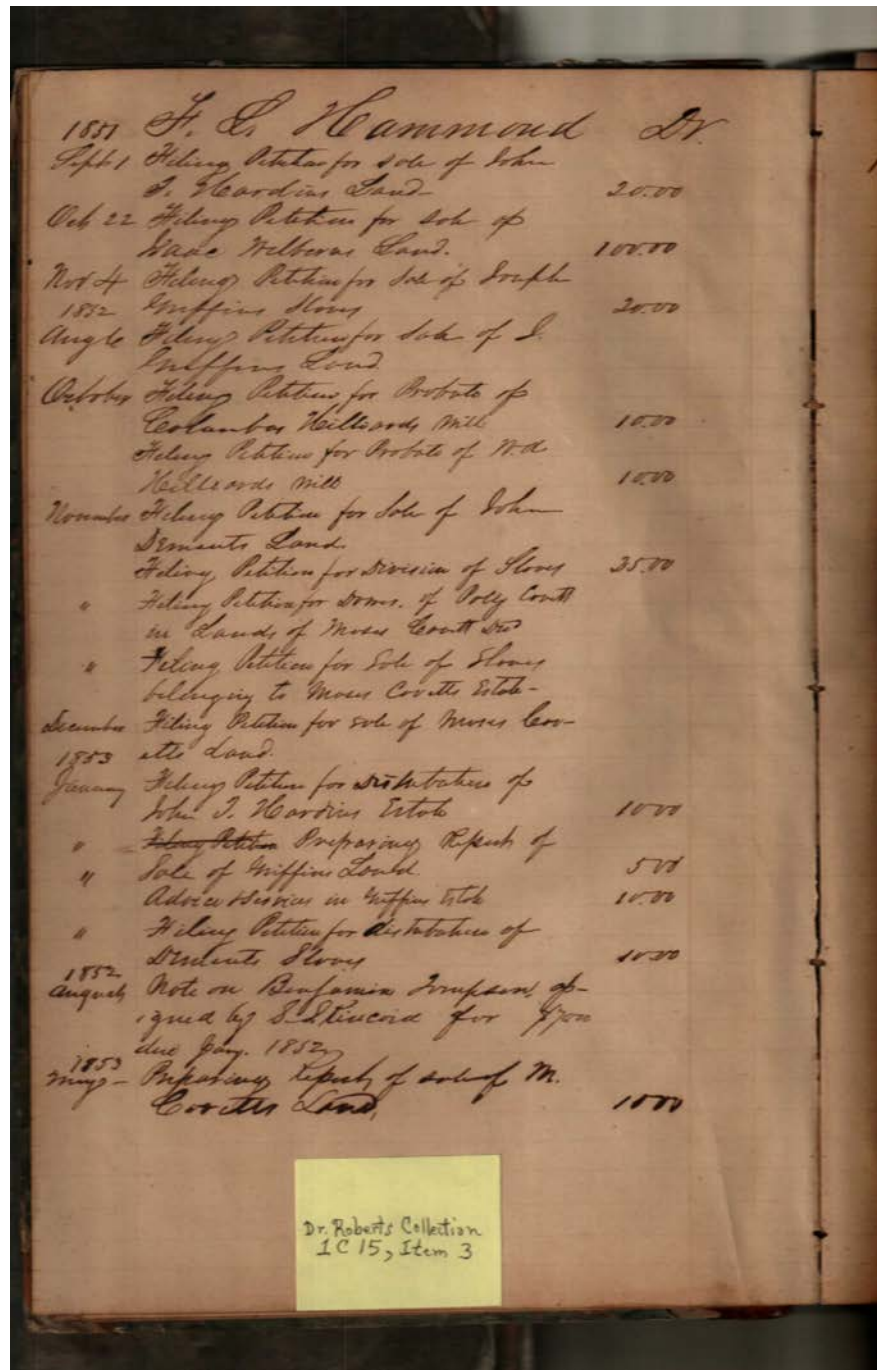 1851 F. L. Hammond Dr.
Sept 1 Filing Petition for sale of John
T. Hardins Land 20.00
Oct 22 Filing Petition for sale of
Isaac Welborns Land. 100.00
Nov 4 Filing Petition for Sale of Joseph
1852 Griffins Slaves 20.00
Aug 6 Filing Petition for Sale of J.
Griffins Land.
October Filing Petition for Probate of
Columbus Hilliards Will 10.00
Filing Petition for Probate of W.d.
Hilliards Will 10.00
November Filing Petition for Sale of John
Dements Land.
Filing Petition for Division of Slaves 35.00
" Filing Petition for Dower. of Polly Covett
in Lands of Moses Covett
" Filing Petition for Sale of Slaves
belonging to Moses Covetts Estate-
December Filing Petition for sale of Moses Cov-
1853 etts Land.
January Filing Petition for Distribution of
John T. Hardins Estate 10 00
" Filing Petition Preparing Report of
" Sale of Griffins Land. 5 00
Advice & Services in Griffins Estate 10.00
" Filing Petition for distribution of
Dements Slaves 10.00
1852
August Note on Benjamin
igned by for $700
due Jany. 1852
1853
May - Preparing Report of sale of M.
Covetts Land, 10 00
Dr. Roberts Collection
1C15, Item 3